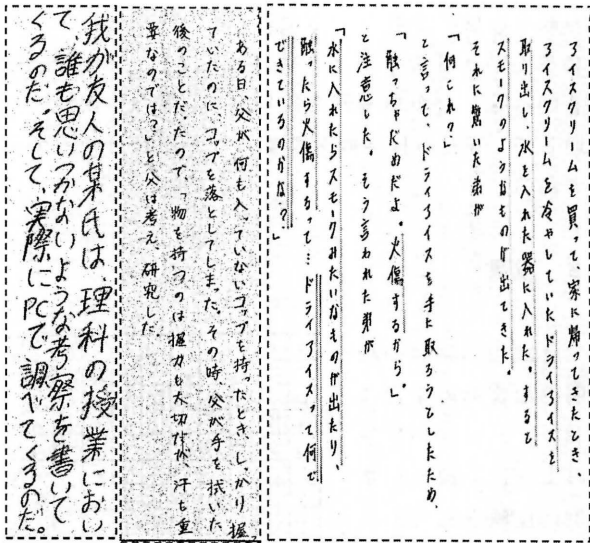 アイスクリームを買って、家に帰ってきたとき、
アイスクリームを冷やしていたドライアイスを
取り出し、水を入れた器に入れた。すると
スモークのようなものが出てきた。
それに驚いた弟が
「何これ?」
と言って、ドライアイスを手に取ろうとしたため、
「触っちゃだめだよ。火傷するから」
と注意した。そう言われた弟が
「水に入れたらスモークみたいなものが出たり、
触ったら火傷するって…ドライアイスって何で
できているのかな?」
ある日、父が何も入っていないコップを持ったとき、しっかり握っ
ていたのに、コップを落としてしまった。その時、父が手を拭いた
後のことだったので、「物を持つのは握力も大切だが、汗も重
要なのでは?」と父は考え、研究した
我が友人の某氏は、理科の授業におい
て、誰も思いつかないような考察を書いて
くるのだ。そして、実際にPCで調べてくるのだ。